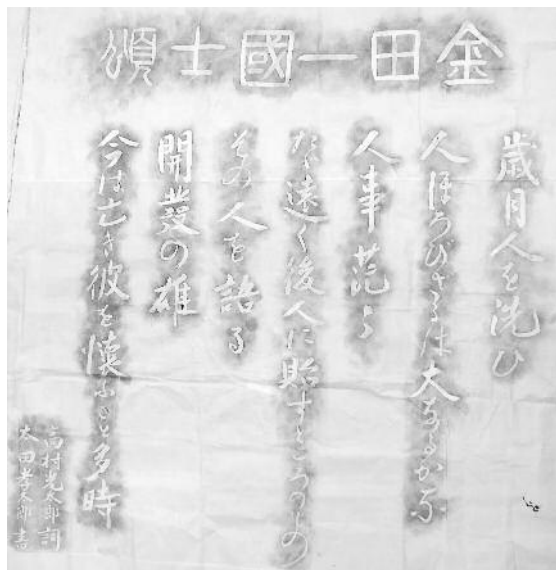 金田一國士頌
歳月人を洗ひ
人ほろびざるは大なるかな
人事茫々
たゞ遠く後人に貽すところのもの
その人を語る
開發の雄
今は亡き彼を懐ふこと多時
高村光太郎詞
太田孝太郎書